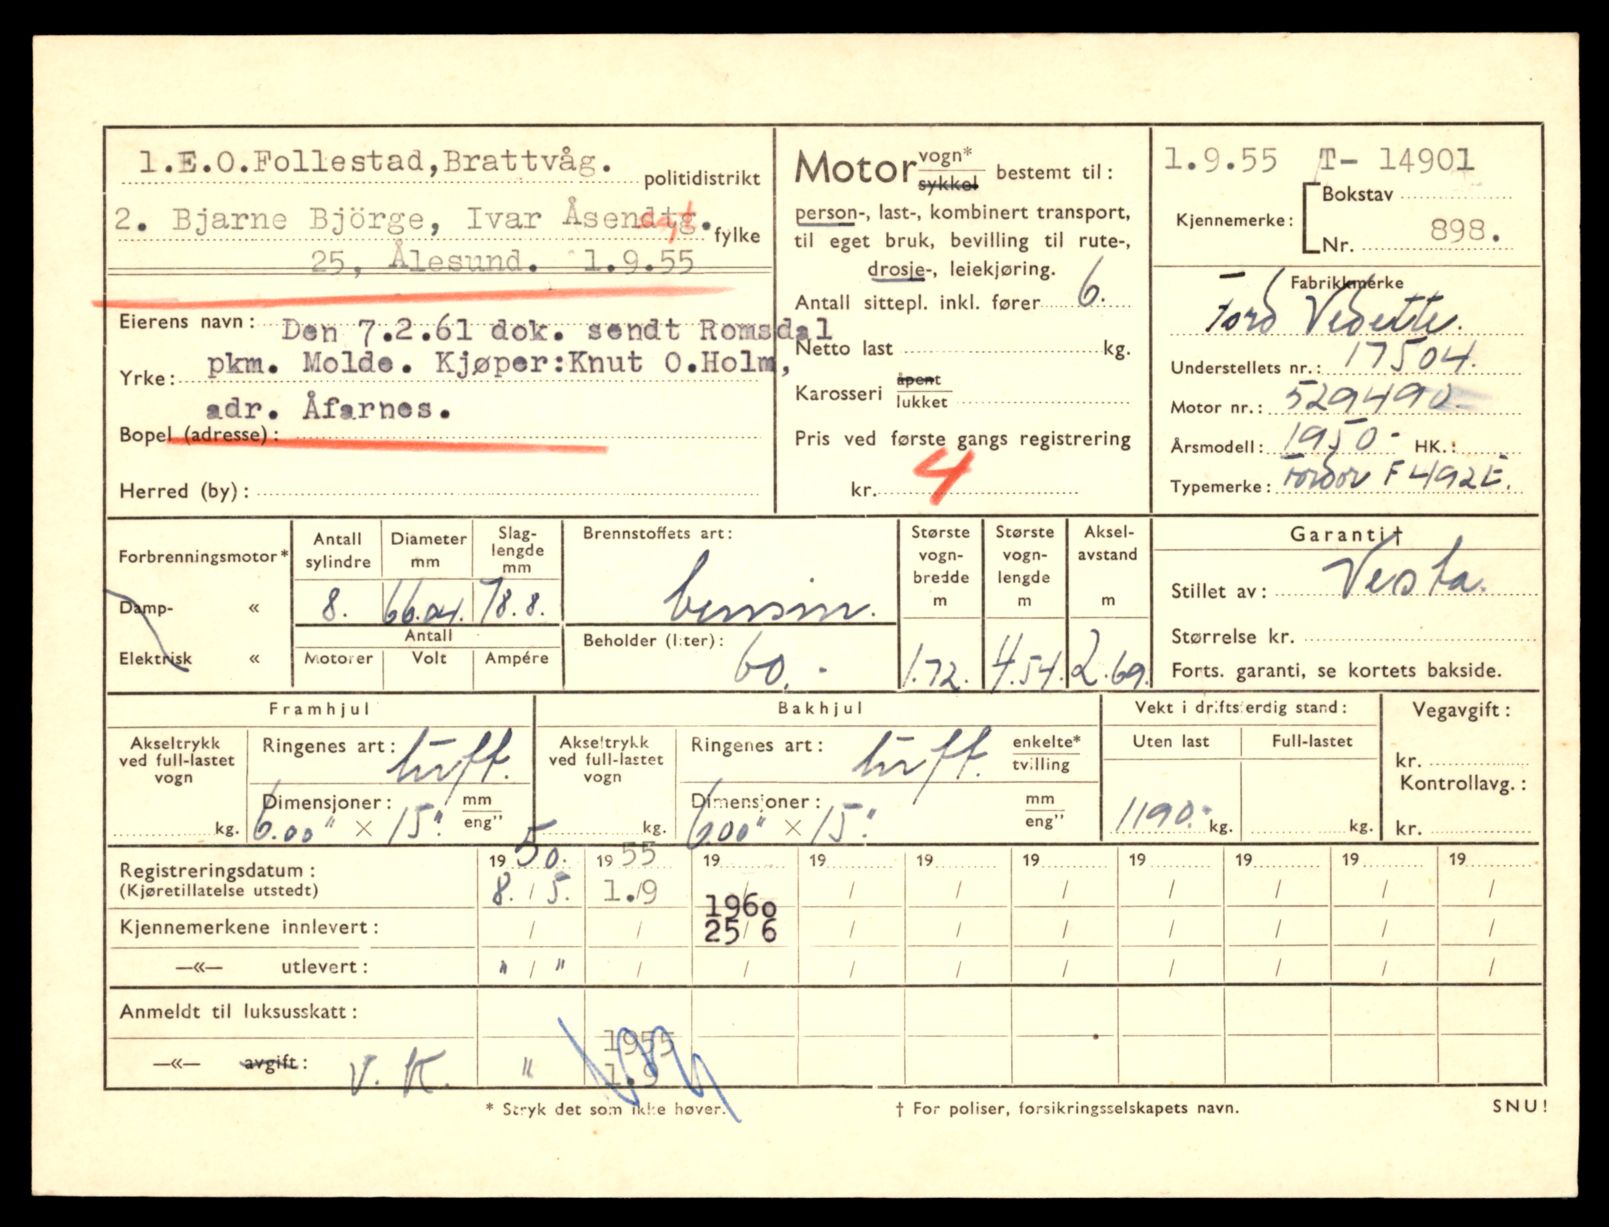 1.E.O.Follestad, Brattvåg. politidistrikt
2. Bjarne Björge, Ivar Åsendtg. fylke
25, Ålesund. 1.9.55
Eierens navn: Den 7.2.61 dok. sendt Romsdal
Yrke: pkm. Molde. Kjøper:Knut O.Holm,
adr. Åfarnes.
Bopel (adresse):
Herred (by):
Motor vogn* sykkel bestemt til:
person-, last-, kombinert transport,
til eget bruk, bevilling til rute-,
drosje-, leiekjøring.
Antall sittepl. inkl. fører 6.
Netto last kg.
Karosseri åpent lukket
Pris ved første gangs registrering
kr. 4
1.9.55 T- 14901
Bokstav
Kjennemerke:
Nr. 898.
Fabrikkmerke
Ford Vedette.
Understellets nr.: 17504.
Motor nr.: 529490
Årsmodell: 1950- HK.:
Typemerke: Fordor F 492E.
Forbrenningsmotor*
Damp- «
Elektrisk «
Antall sylindre
8.
Diameter mm
66.04.
Slag-lengde mm
78.8.
Antall
Motorer Volt Ampére
Brennstoffets art:
bensin.
Beholder (liter):
60.-
Største vogn-bredde m
1.72.
Største vogn-lengde m
4.54.
Aksel-avstand m
2.69.
Garanti†
Stillet av: Vesta.
Størrelse kr.
Forts. garanti, se kortets bakside.
Framhjul
Akseltrykk ved full-lastet vogn
kg.
Ringenes art: luft.
Dimensjoner: mm eng"
6.00" × 15".
Bakhjul
Akseltrykk ved full-lastet vogn
kg.
Ringenes art: luft. enkelte* tvilling
Dimensjoner: mm eng"
6.00" × 15".
Vekt i driftsferdig stand:
Uten last Full-lastet
1190.- kg. kg.
Vegavgift:
kr.
Kontrollavg.:
kr.
Registreringsdatum: 19 50. 19 55 19 19 19 19 19 19 19 19
(Kjøretillatelse utstedt) 8. / 5. 1./9 / / / / / / / /
1960
Kjennemerkene innlevert: / / 25/ 6 / / / / / / /
—«— utlevert: " / " / / / / / / / / /
Anmeldt til luksusskatt:
1955
—«— avgift: V. K. " 1.9
* Stryk det som ikke høver.
† For poliser, forsikringsselskapets navn.
SNU!